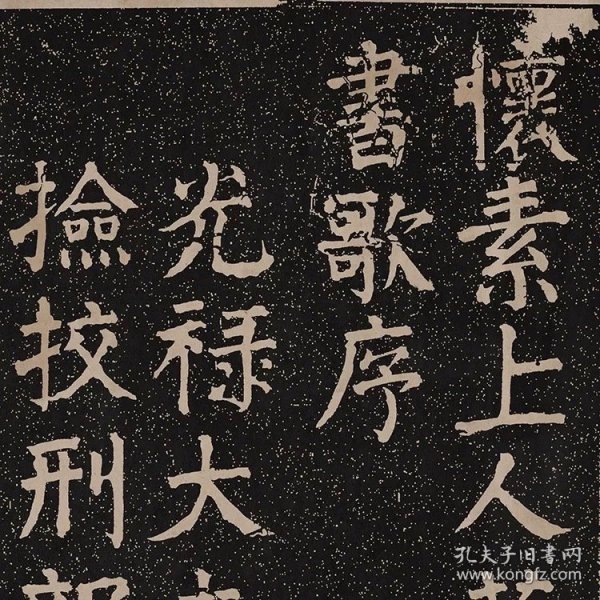 懷素上人
書歌序
光禄大
撿挍刑
孔夫子旧书网
www.kongfz.com